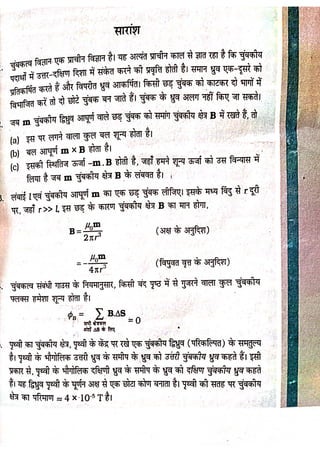 सारांश
चुंबकत्व विज्ञान एक प्राचीन विज्ञान है। यह अत्यंत प्राचीन काल से ज्ञात रहा है कि चुंबकीय
पदार्थों में उत्तर-दक्षिण दिशा में संकेत करने की प्रवृत्ति होती है। समान ध्रुव एक-दूसरे को
प्रतिकर्षित करते हैं और विपरीत ध्रुव आकर्षित। किसी छड़ चुंबक को काटकर दो भागों में
विभाजित करें तो दो छोटे चुंबक बन जाते हैं। चुंबक के ध्रुव अलग नहीं किए जा सकते।
जब m चुंबकीय द्विध्रुव आघूर्ण वाले छड़ चुंबक को समांग चुंबकीय क्षेत्र B में रखते हैं, तो
(a) इस पर लगने वाला कुल बल शून्य होता है।
(b) बल आघूर्ण m × B होता है।
(c) इसकी स्थितिज ऊर्जा -m.B होती है, जहाँ हमने शून्य ऊर्जा को उस विन्यास में
लिया है जब m चुंबकीय क्षेत्र B के लंबवत है।
लंबाई l एवं चुंबकीय आघूर्ण m का एक छड़ चुंबक लीजिए। इसके मध्य बिंदु से r दूरी
पर, जहाँ r >> l, इस छड़ के कारण चुंबकीय क्षेत्र B का मान होगा,
B = μ₀m / 2πr³ (अक्ष के अनुदिश)
= - μ₀m / 4πr³ (विषुवत वृत्त के अनुदिश)
चुंबकत्व संबंधी गाउस के नियमानुसार, किसी बंद पृष्ठ में से गुजरने वाला कुल चुंबकीय
फ्लक्स हमेशा शून्य होता है।
ϕ_B = ∑ B.ΔS = 0
सभी क्षेत्रफल
ΔS के लिए
पृथ्वी का चुंबकीय क्षेत्र, पृथ्वी के केंद्र पर रखे एक चुंबकीय द्विध्रुव (परिकल्पित) के समतुल्य
है। पृथ्वी के भौगोलिक उत्तरी ध्रुव के समीप के ध्रुव को उत्तरी चुंबकीय ध्रुव कहते हैं। इसी
प्रकार से, पृथ्वी के भौगोलिक दक्षिणी ध्रुव के समीप के ध्रुव को दक्षिण चुंबकीय ध्रुव कहते
हैं। यह द्विध्रुव पृथ्वी के घूर्णन अक्ष से एक छोटा कोण बनाता है। पृथ्वी की सतह पर चुंबकीय
क्षेत्र का परिमाण = 4 × 10⁻⁵ T है।